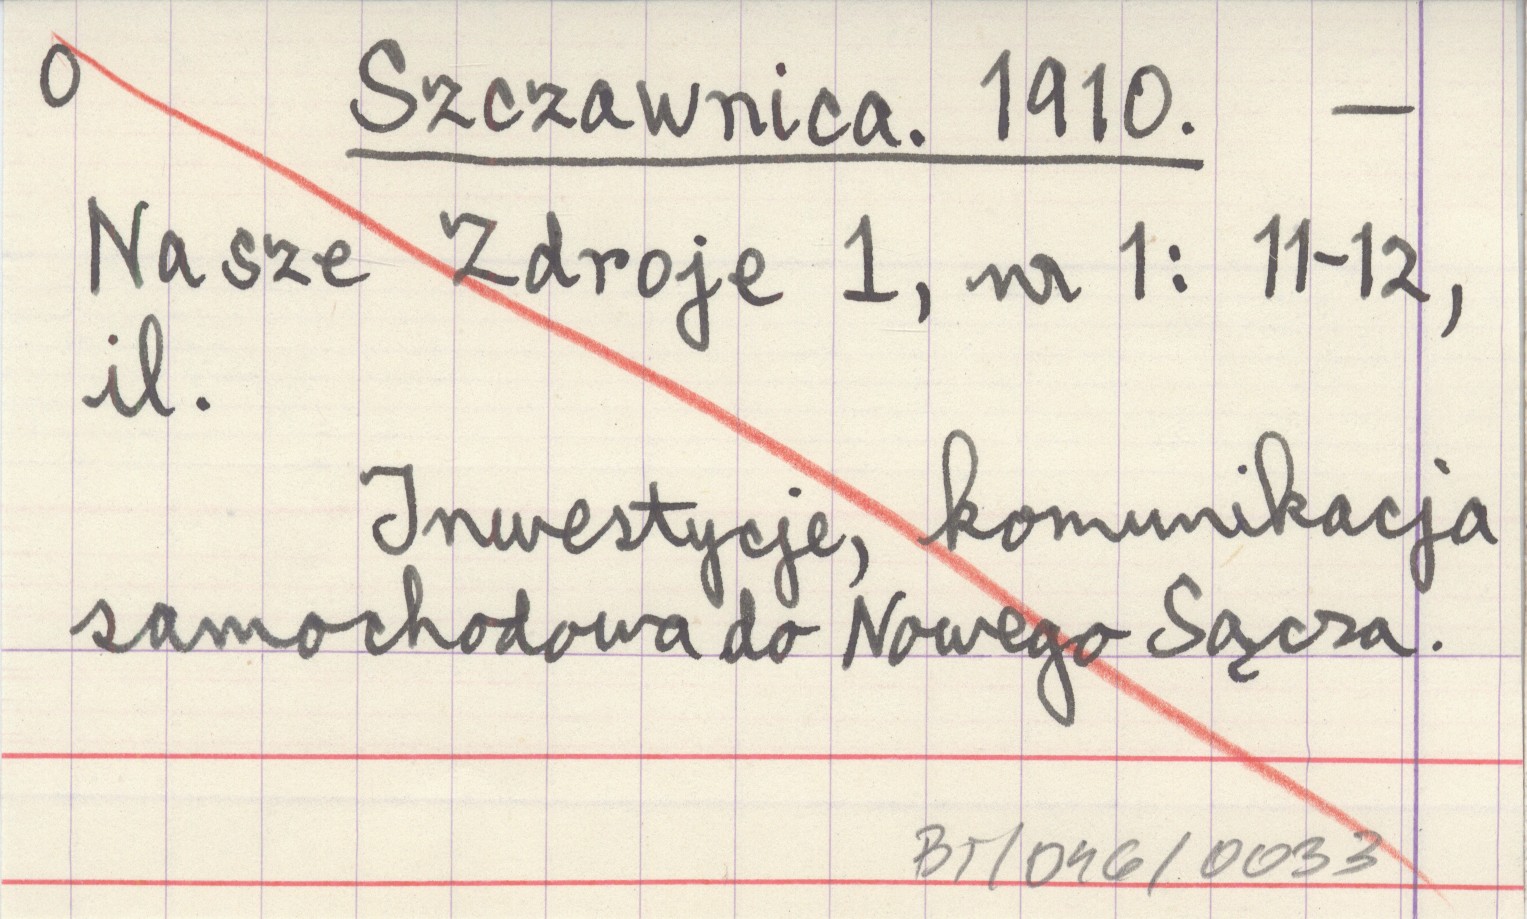 0 Szczawnica. 1910. —
Nasze Zdroje 1, nr 1: 11-12,
il.
Inwestycje, komunikacja
samochodowa do Nowego Sącza.
BT/046/0033